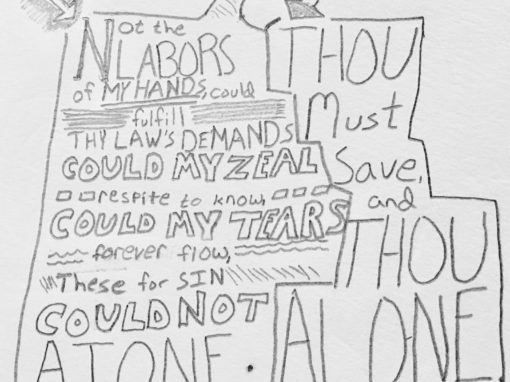 Not the
LABORS
of MY HANDS, could
fulfill
THY LAW'S DEMANDS
COULD MY ZEAL
respite to know,
COULD MY TEARS
forever flow,
These for SIN
COULD NOT
ATONE.
THOU
Must
Save,
and
THOU
ALONE